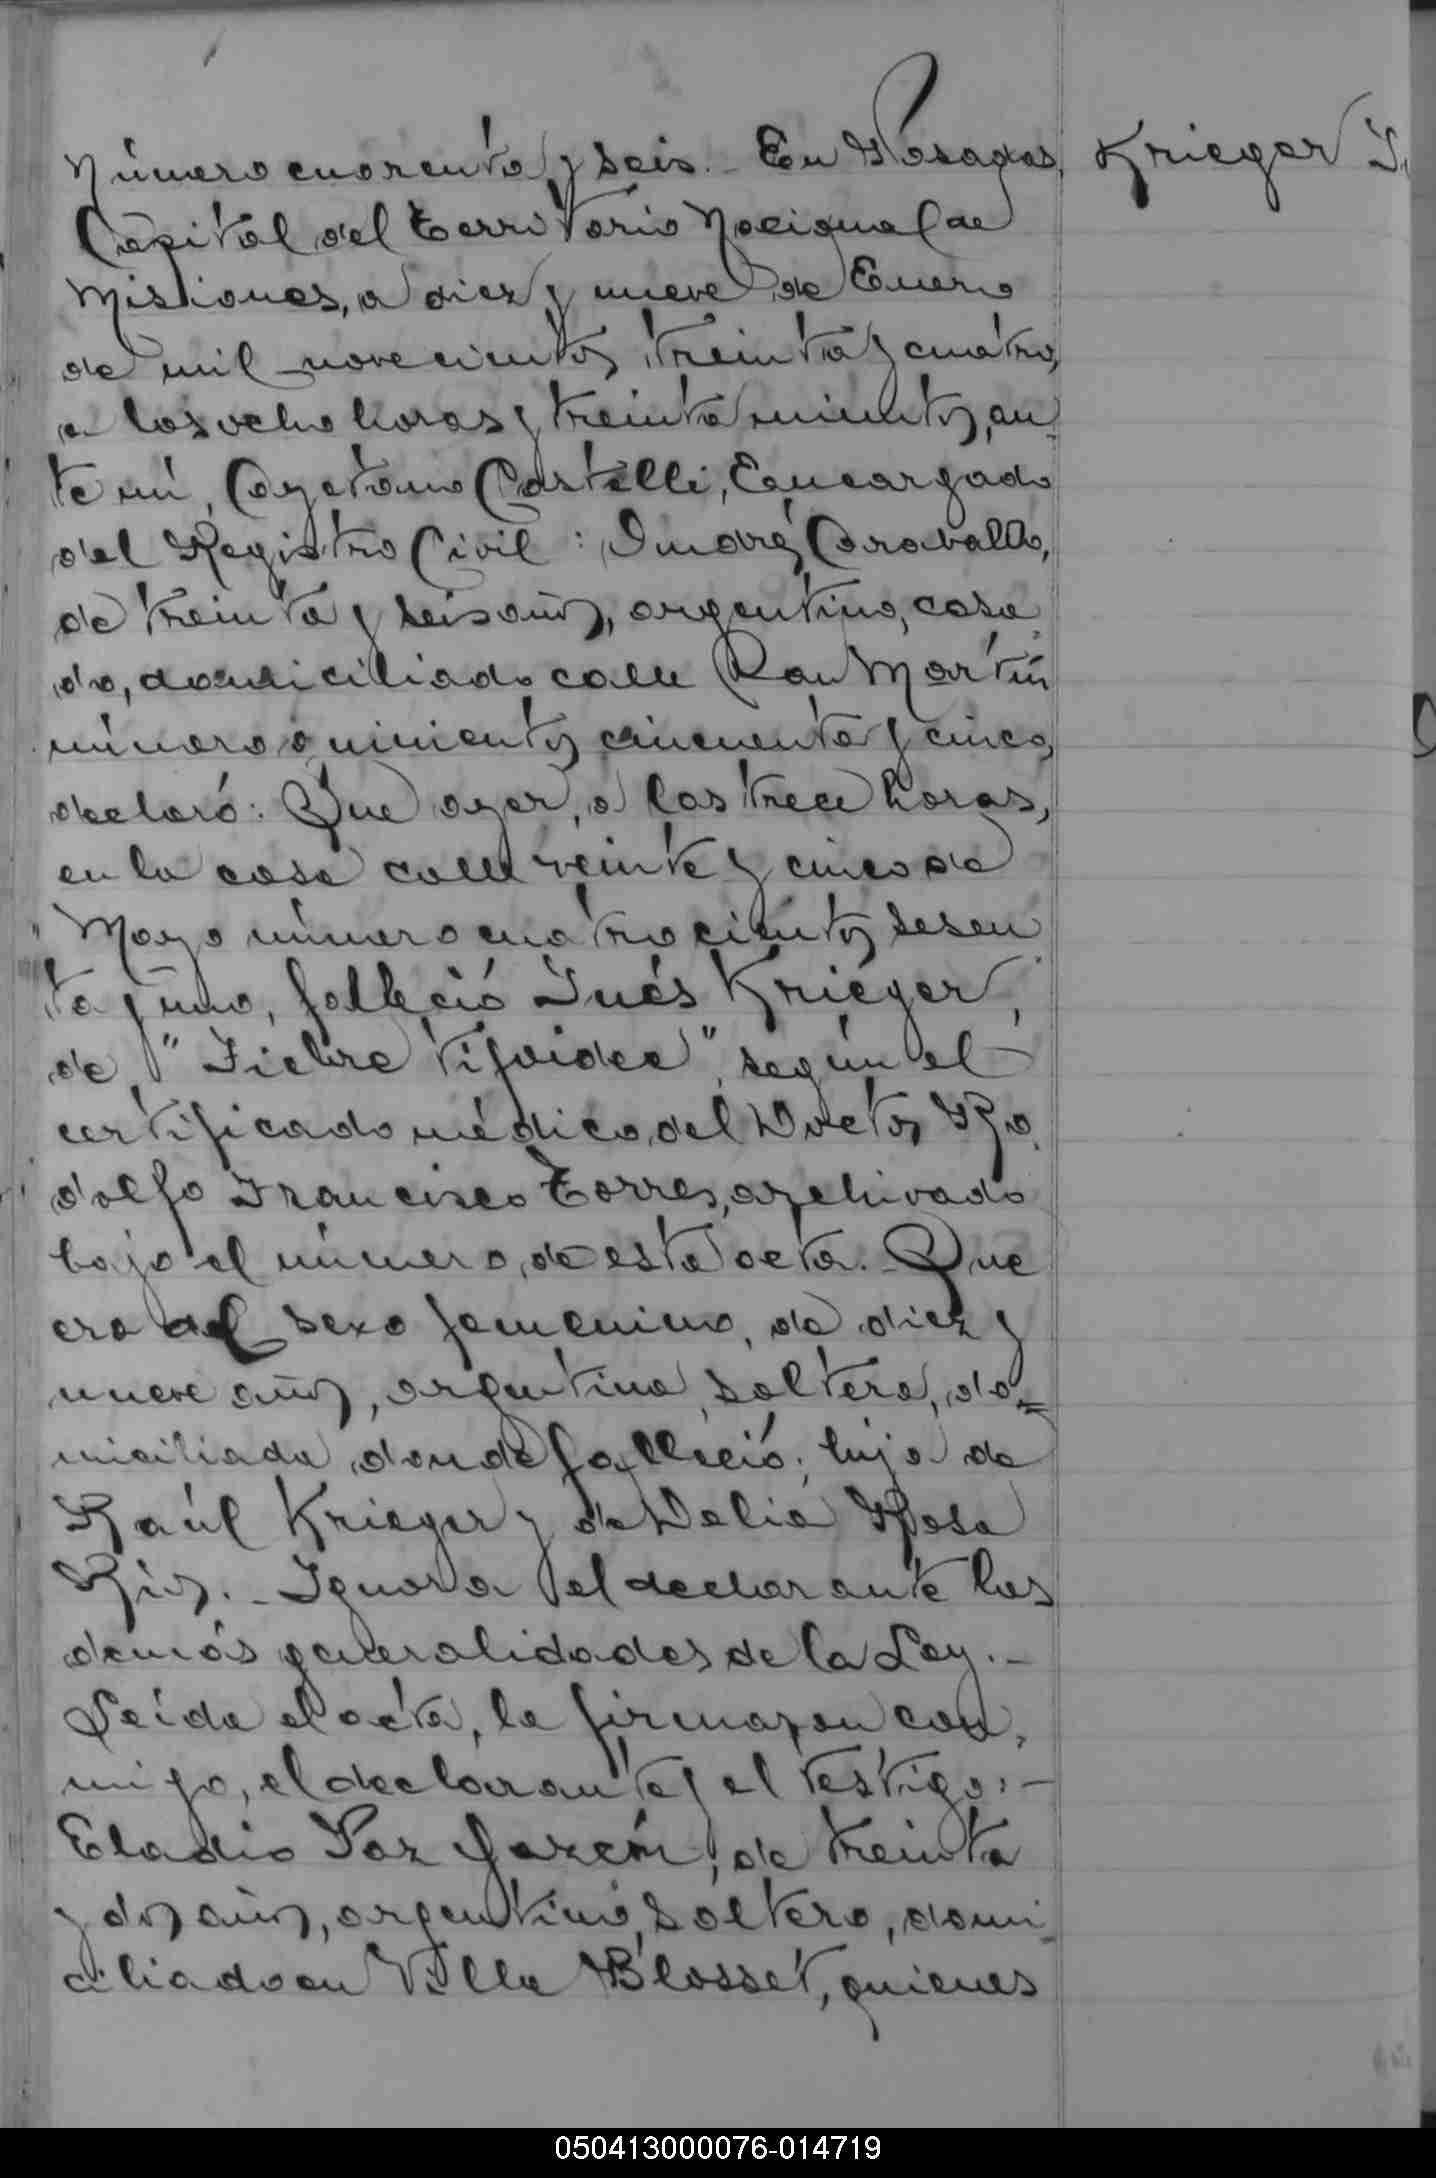 Número cuarenta y seis.- En Posadas,
Krieger I.
Capital del Territorio Nacional de
Misiones, a diez y nueve de Enero
de mil novecientos treinta y cuatro,
a las ocho horas y treinta minutos, an-
te mí, Cayetano Castelli, Encargado
del Registro Civil: Caraballo,
de treinta y seis años, argentino, casa-
do, domiciliado calle San Martín
número quinientos cincuenta y cinco,
declaró: Que ayer, a las trece horas,
en la casa calle veinte y cinco de
Mayo número cuatrocientos sesen-
ta y uno, falleció Inés Krieger,
de "Fiebre tifoidea", según el
certificado médico del Doctor Ro-
dolfo Francisco Torres, archivado
bajo el número de esta acta.- Que
era del sexo femenino, de diez y
nueve años, argentina, soltera, do-
miciliada donde falleció; hija de
Raúl Krieger y de Delia Rosa
Ríos.- Ignora el declarante las
demás generalidades de la Ley.-
Leída el acta, la firmaron con-
migo, el declarante y el testigo:-
Eladio Paz, de treinta
y dos años, argentino, soltero, domi-
ciliado en Villa Blosset, quienes
050413000076-014719